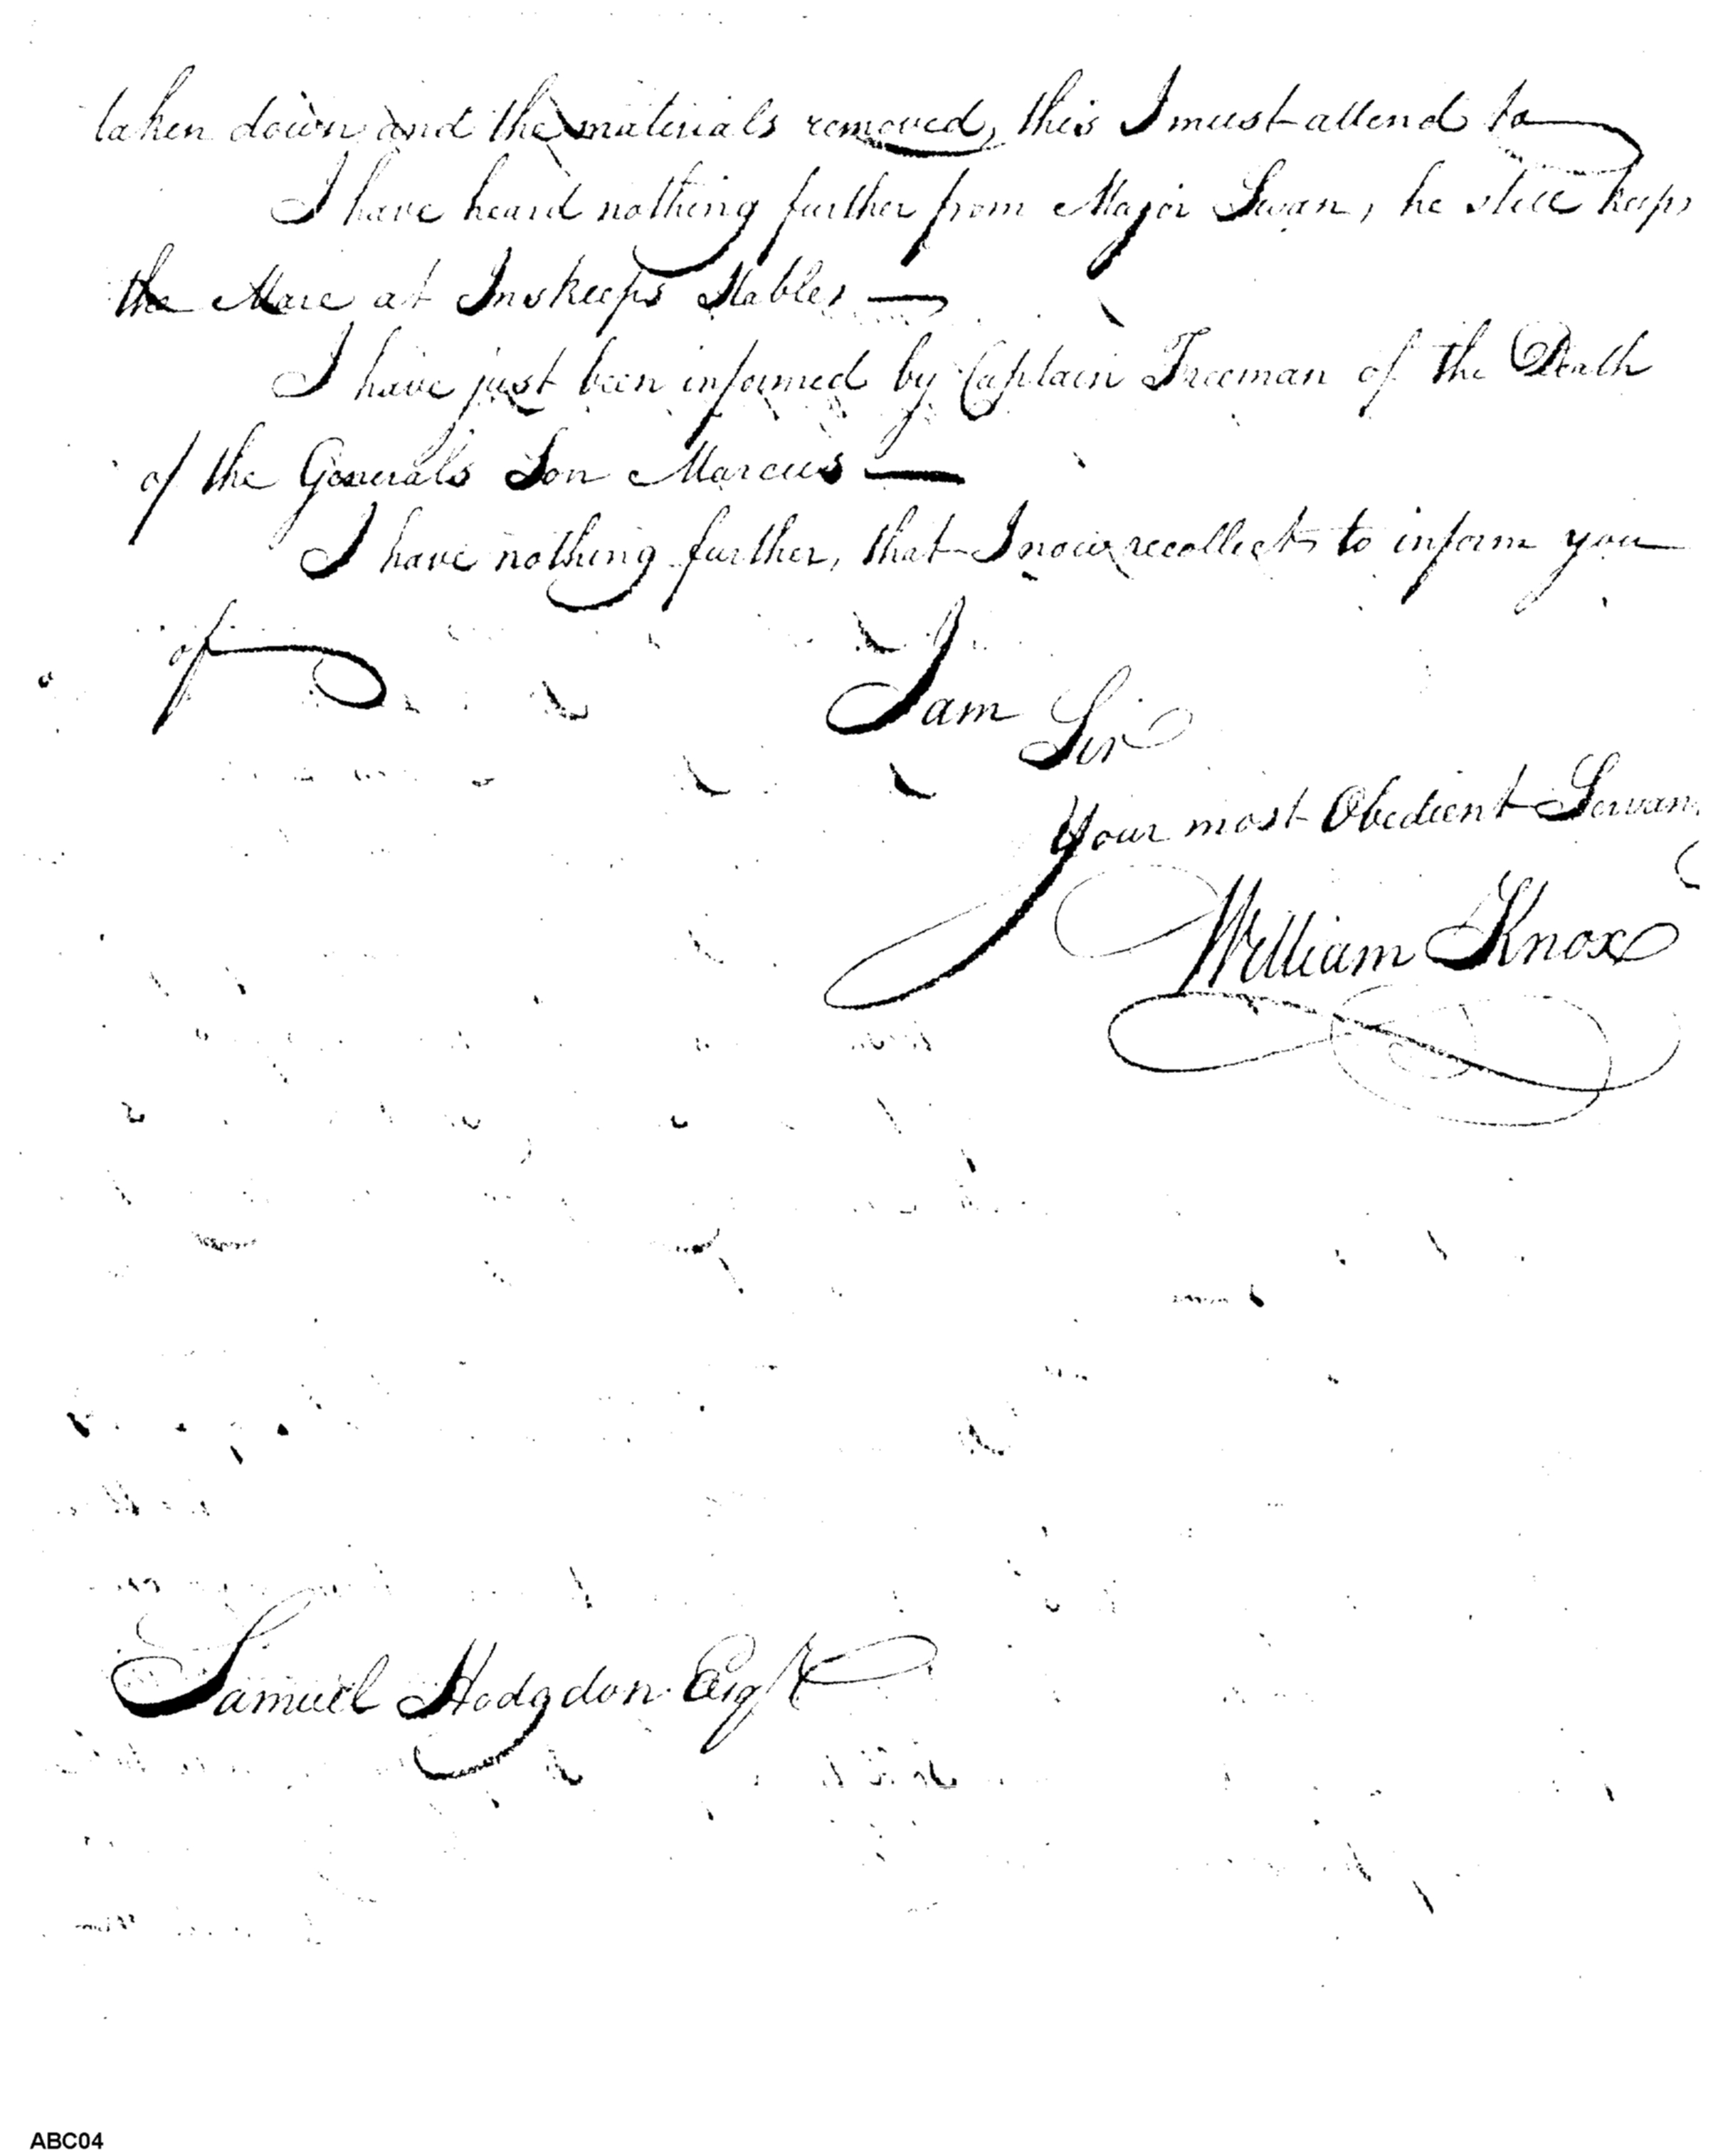 taken down and the materials removed, this I must attend to
I have heard nothing further from Major Swan, he still keeps
the Mare at Inskeeps Stables —
I have just been informed by Captain Freeman of the Death
of the Generals Son Marcus —
I have nothing further, that I now recollect to inform you
of
I am
Sir
Your most Obedient Servan
William Knox
Samuel Hodgdon Esqr
ABC04